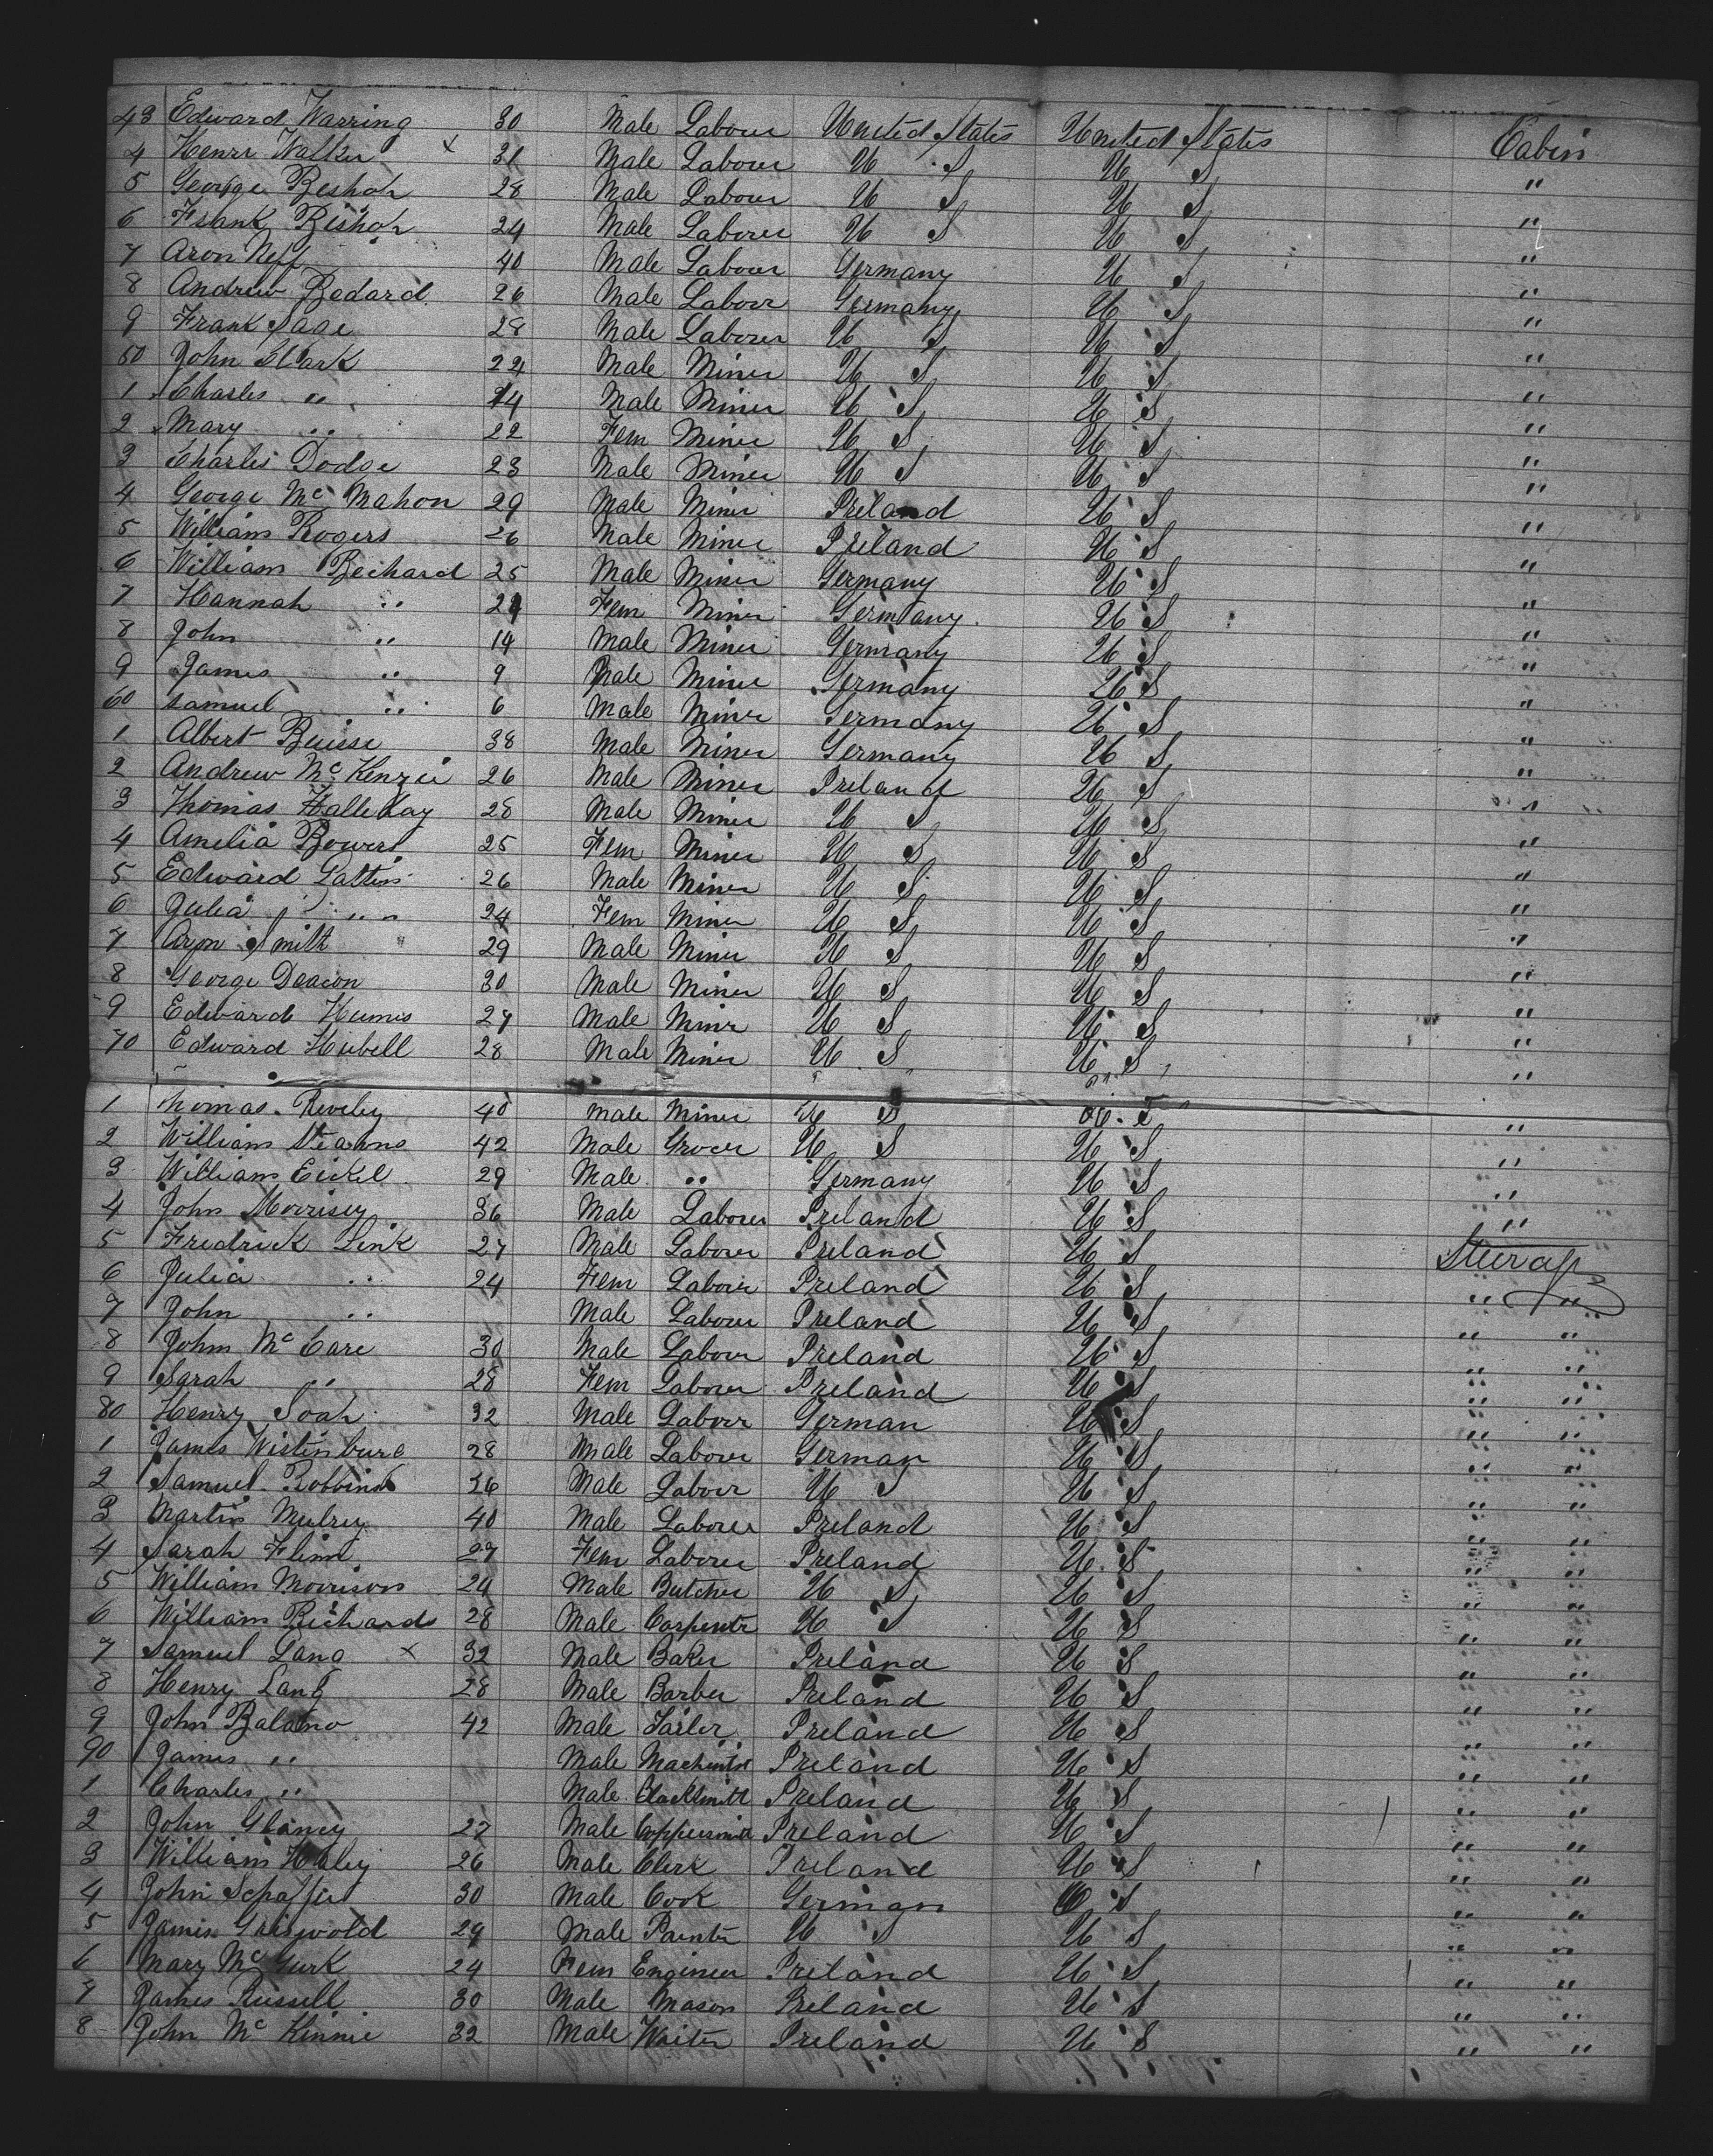 43 Edward Warring 30 Male Labour United States United States Cabin
4 Henrr Walker x 31 Male Labour U S U S "
5 George Beshop 28 Male Labour U S U S "
6 Frank Bishop 24 Male Laborer U S U S "
7 Aron Neff 40 Male Labour Germany U S "
8 Andrew Bedard 26 Male Labour Germany U S "
9 Frank Sage 28 Male Laborer U S U S "
50 John Clark 22 Male Miner U S U S "
1 Charles " 24 Male Miner U S U S "
2 Mary " 22 Fem Miner U S U S "
3 Charles Dodge 23 Male Miner U S U S "
4 George Mc Mahon 29 Male Miner Ireland U S "
5 William Rogers 26 Male Miner Ireland U S "
6 William Bechard 25 Male Miner Germany U S "
7 Hannah " Fem Miner Germany U S "
8 John " 14 Male Miner Germany U S "
9 James " 9 Male Miner Germany U S "
60 Samuel " 6 Male Miner Germany U S "
1 Albert Buisse 38 Male Miner Germany U S "
2 Andrew Mc Kenzie 26 Male Miner Ireland U S "
3 Thomas Halleday 28 Male Miner U S U S "
4 Amelia Bowers 25 Fem Miner U S U S "
5 Edward Gattins 26 Male Miner U S U S "
6 Julia " 24 Fem Miner U S U S "
7 Aron Smith 29 Male Miner U S U S "
8 George Deacon 30 Male Miner U S U S "
9 Edward Humes 27 Male Minr U S U S "
70 Edward Hubell 28 Male Miner U S U S "
1 Thomas Reveley 40 Male Miner U S U S "
2 William Stearns 42 Male Grocer U S U S "
3 William Eickel 29 Male " Germany U S "
4 John Morrisey 36 Male Laborer Ireland U S "
5 Fredrick Link 27 Male Laborer Ireland U S Steerage
6 Julia " 24 Fem Laborer Ireland U S " "
7 John " Male Labour Ireland U S " "
8 John Mc Care 30 Male Labour Ireland U S " "
9 Sarah " 28 Fem Labour Ireland U S " "
80 Henry Soah 32 Male Laborr German U S " "
1 James Wistinburg 28 Male Laborer German U S " "
2 Samuel Robbins 36 Male Laborr U S U S " "
3 Martin Mulrey 40 Male Laborer Ireland U S " "
4 Sarah Flinn 27 Fem Laborer Ireland U S " "
5 William Morrison 24 Male Butcher U S U S " "
6 William Richards 28 Male Carpentr U S U S " "
7 Samuel Lang x 32 Male Baker Ireland U S " "
8 Henry Lang 28 Male Barber Ireland U S " "
9 John Balano 42 Male Tailer Ireland U S " "
90 James " Male Machinist Ireland U S " "
1 Charles " Male Blacksmith Ireland U S " "
2 John Glancy 27 Male Coppersmith Ireland U S " "
3 William Haley 26 Male Clerk Ireland U S " "
4 John Schaffer 30 Male Cook German U S " "
5 James Griswold 29 Male Painter U S U S " "
6 Mary Mc Gurk 24 Fem Engineer Ireland U S " "
7 James Russell 30 Male Mason Ireland U S " "
8 John Mc Kinnie 32 Male Waiter Ireland U S " "